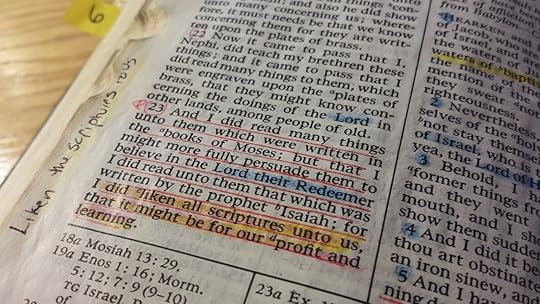 6
unto many concerning us; and also he did show
concerning them for they are writ-
ten upon the plates of brass.
22 Now it came to pass that I,
Nephi, did teach my brethren these
things; and it came to pass that I
did read many things to them, which
were engraven upon the plates of
brass, that they might know con-
cerning the doings of the Lord in
other lands, among people of old.
23 And I did read many things
unto them which were written in
the books of Moses; but that I
might more fully persuade them to
believe in the Lord their Redeemer
I did read unto them that which was
written by the prophet Isaiah; for
I did liken all scriptures unto us,
that it might be for our profit and
learning.
Liken the scriptures to us
18a Mosiah 13: 29.
19a Enos 1: 16; Morm.
5: 12; 7: 9 (9–10).
TG Israel,
23a Ex.
from Babylon
HEARKEN
of Jacob, who
of Israel, and
waters of bapti
the name of the
mention of the
they swear
righteousness.
2 Nevertheless,
selves of the
not stay themsel
of Israel, who is
yea, the Lord of H
3 Behold, I ha
former things fr
and they went
mouth, and I sh
show them sudden
4 And I did it be
thou art obstinate
an iron sinew, and
5 And I